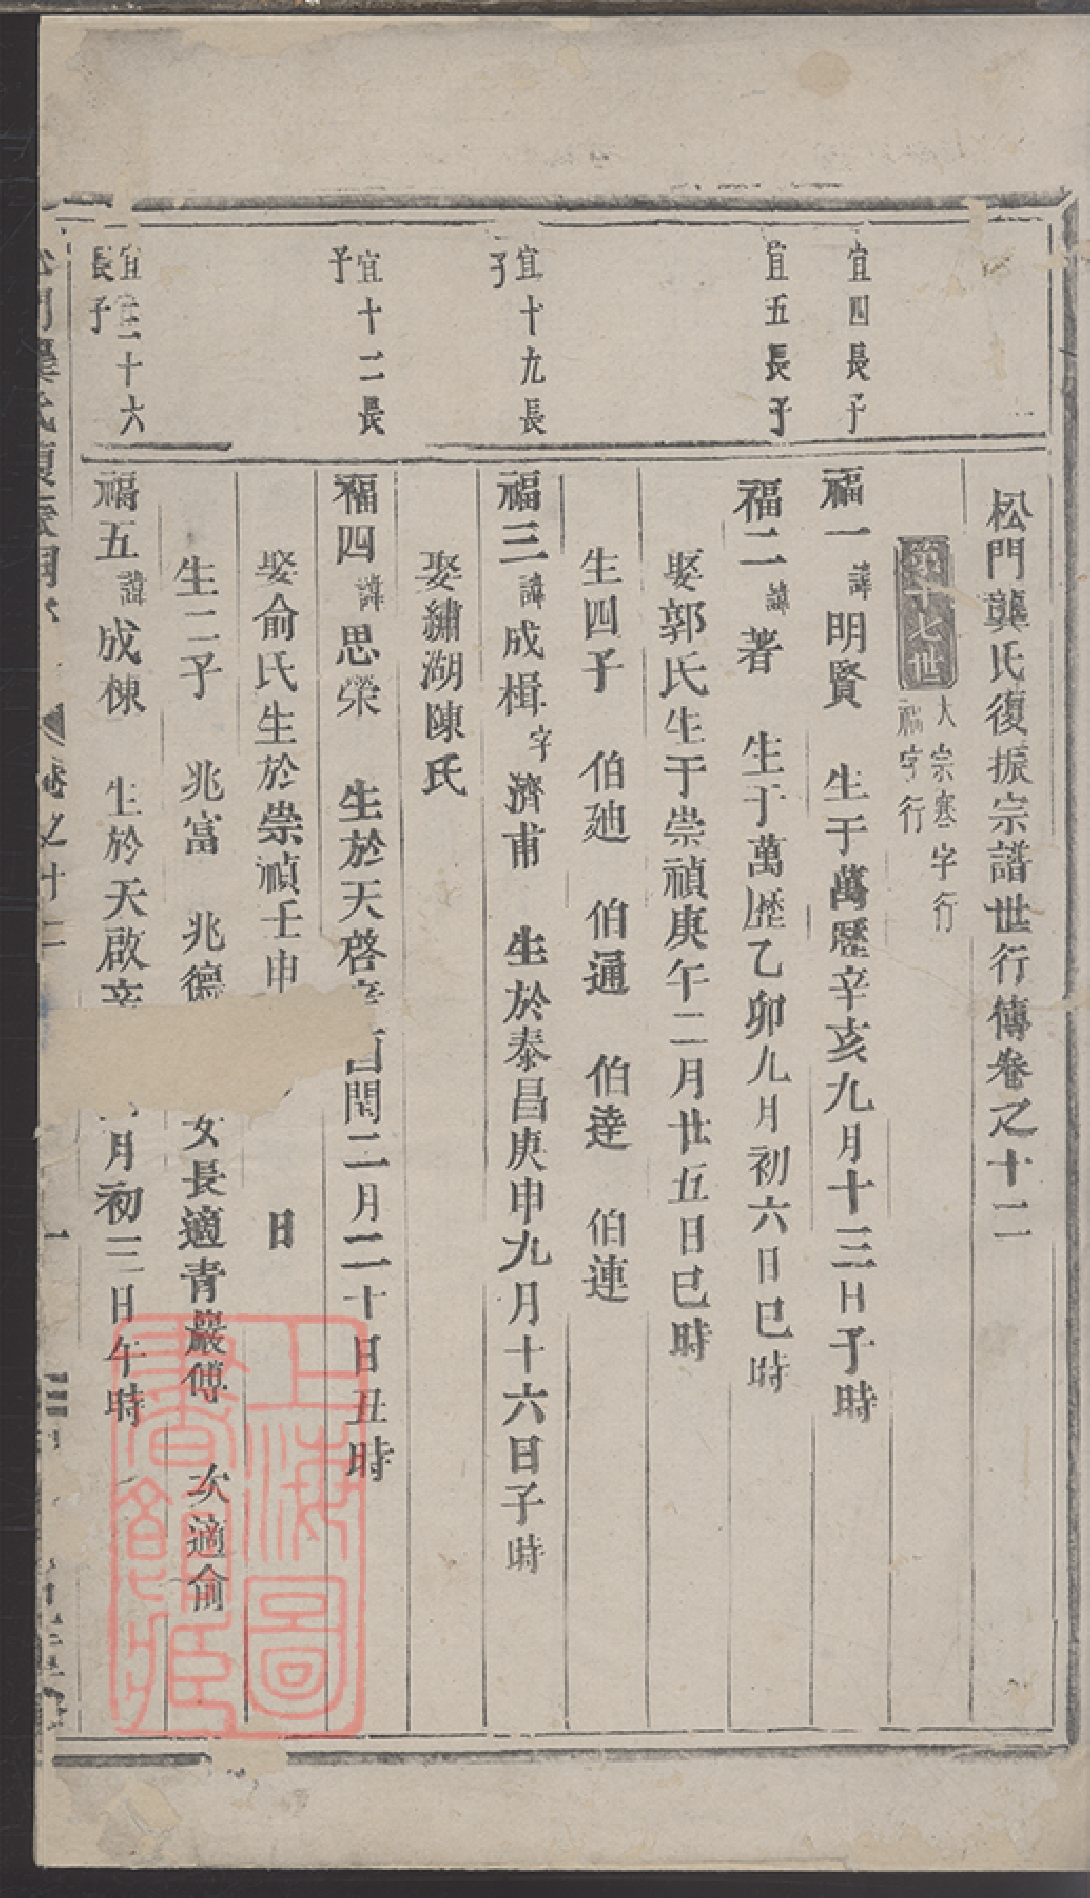 松門龔氏復振宗譜世行傳卷之十二
第十七世
大宗寒字行
福字行
宜四長子
福一諱明賢 生于萬歷辛亥九月十三日子時
宜五長子
福二諱著 生于萬歷乙卯九月初六日巳時
娶郭氏生于崇禎庚午二月廿五日巳時
生四子 伯廸 伯通 伯達 伯連
宜十九長子
福三諱成楫字濟甫 生於泰昌庚申九月十六日子時
娶繡湖陳氏
宜十二長子
福四諱思榮 生於天啓辛酉閏二月二十日丑時
娶俞氏生於崇禎壬申 日
生二子 兆富 兆德 女長適青巖傅 次適俞
宜三十六長子
福五諱成棟 生於天啟辛 月初三日午時
卷之十二
一
上海圖書館藏